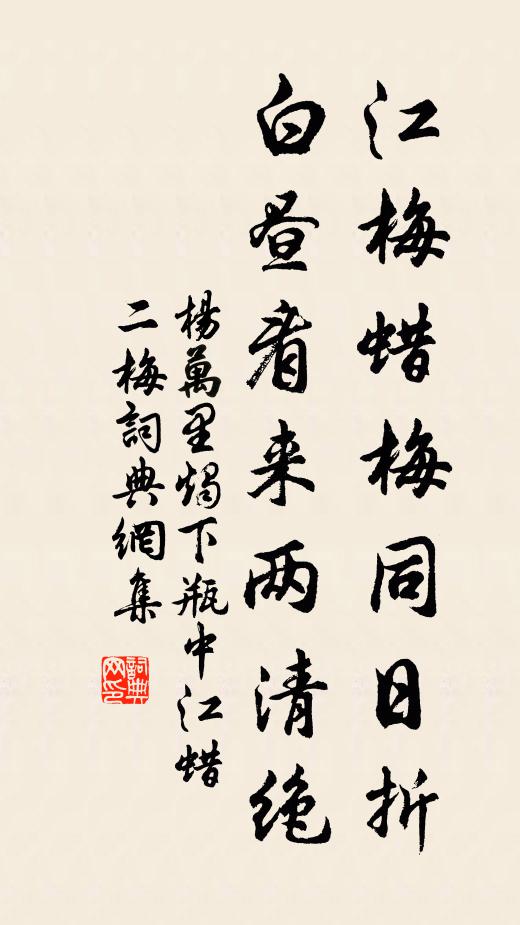 江梅蜡梅同日折
白昼看来两清绝
楊萬里燭下瓶中江蜡
二梅詞典網集
詞典网印